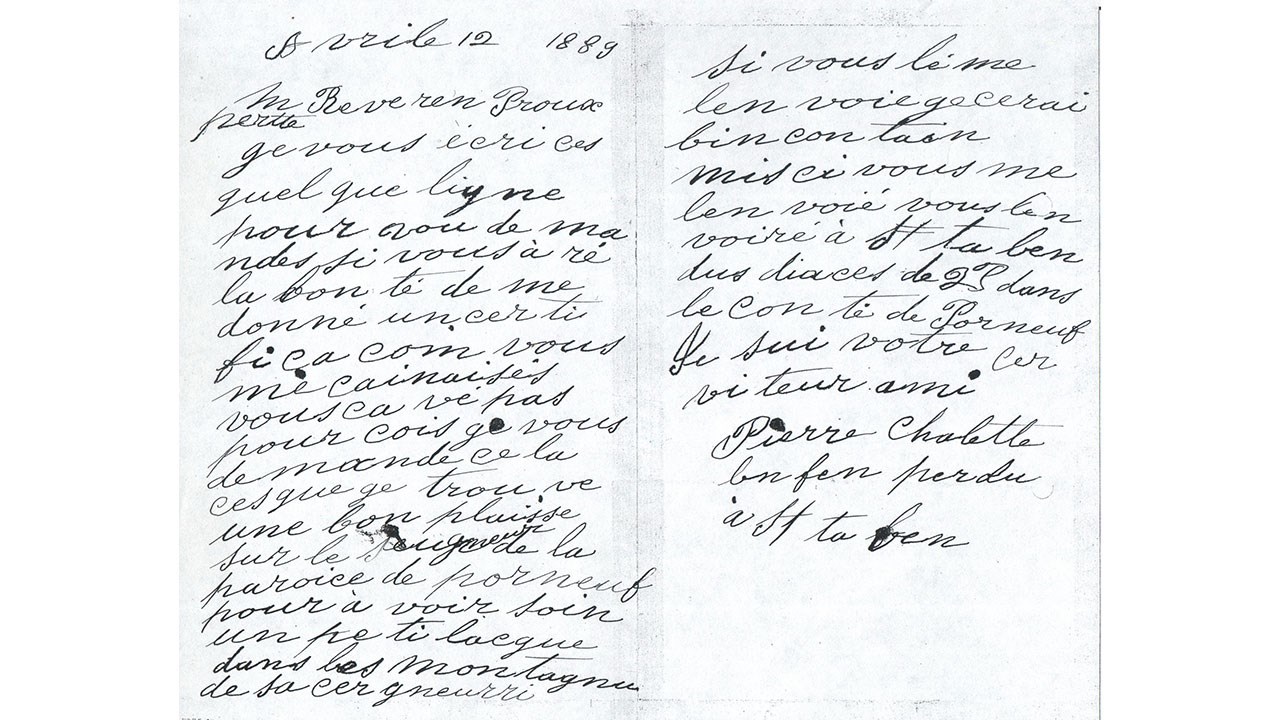 Avrile 12 1889
M Reveren Proux
pertte
ge vous écri ces
quel que ligne
pour vou de ma
ndes si vous à ré
la bon té de me
donné un cer ti
fi ca com vous
me cainaisés
vous ca vé pas
pour cois ge vous
de mande ce la
ces que ge trou ve
une bon plaisse
sur le seugneurri de la
paroice de porneuf
pour à voir soin
un pe ti lacque
dans les montagnu
de sa cer gneurri
si vous lé me
len voie ge cerai
bin con tain
mis ci vous me
len voié vous len
voiré à St ta ben
dus diaces de dans
le con té de Porneuf
Je sui votre cer
vi teur ami
Pierre Chalette
en fen perdu
à St ta ben